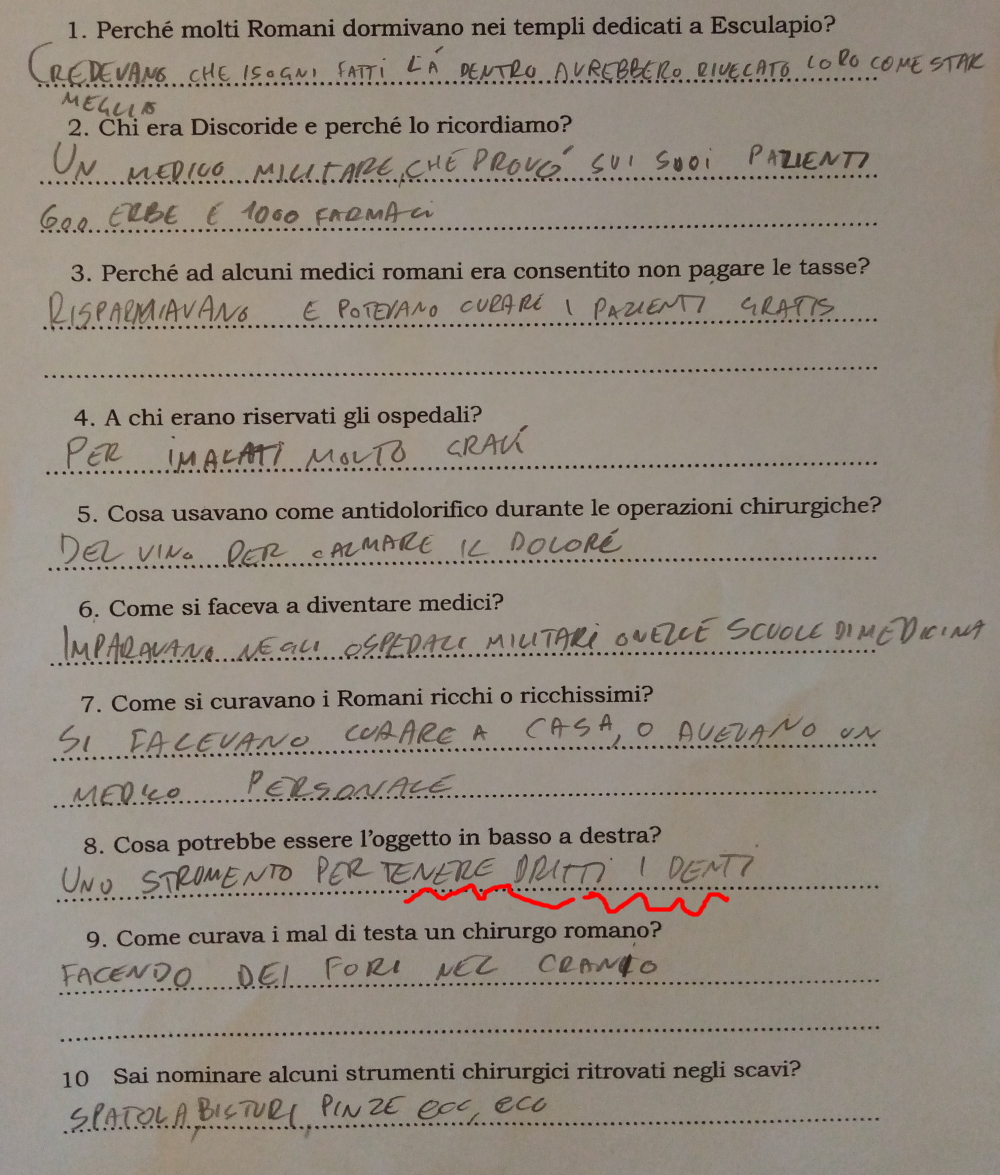 1. Perché molti Romani dormivano nei templi dedicati a Esculapio?
CREDEVANO CHE I SOGNI FATTI LÁ DENTRO AVREBBERO RIVELATO LORO COME STAR
MEGLIO
2. Chi era Discoride e perché lo ricordiamo?
UN MEDICO MILITARE, CHE PROVÓ SUI SUOI PAZIENTI
600 ERBE E 1000 FARMACI
3. Perché ad alcuni medici romani era consentito non pagare le tasse?
RISPARMIAVANO E POTEVANO CURARE I PAZIENTI GRATIS
4. A chi erano riservati gli ospedali?
PER I MALATI MOLTO GRAVI
5. Cosa usavano come antidolorifico durante le operazioni chirurgiche?
DEL VINO PER CALMARE IL DOLORE
6. Come si faceva a diventare medici?
IMPARAVANO NEGLI OSPEDALI MILITARI O NELLE SCUOLE DI MEDICINA
7. Come si curavano i Romani ricchi o ricchissimi?
SI FACEVANO CURARE A CASA, O AVEVANO UN
MEDICO PERSONALE
8. Cosa potrebbe essere l'oggetto in basso a destra?
UNO STROMENTO PER TENERE DRITTI I DENTI
9. Come curava i mal di testa un chirurgo romano?
FACENDO DEI FORI NEL CRANIO
10 Sai nominare alcuni strumenti chirurgici ritrovati negli scavi?
SPATOLA, BISTURI, PINZE ECC, ECC